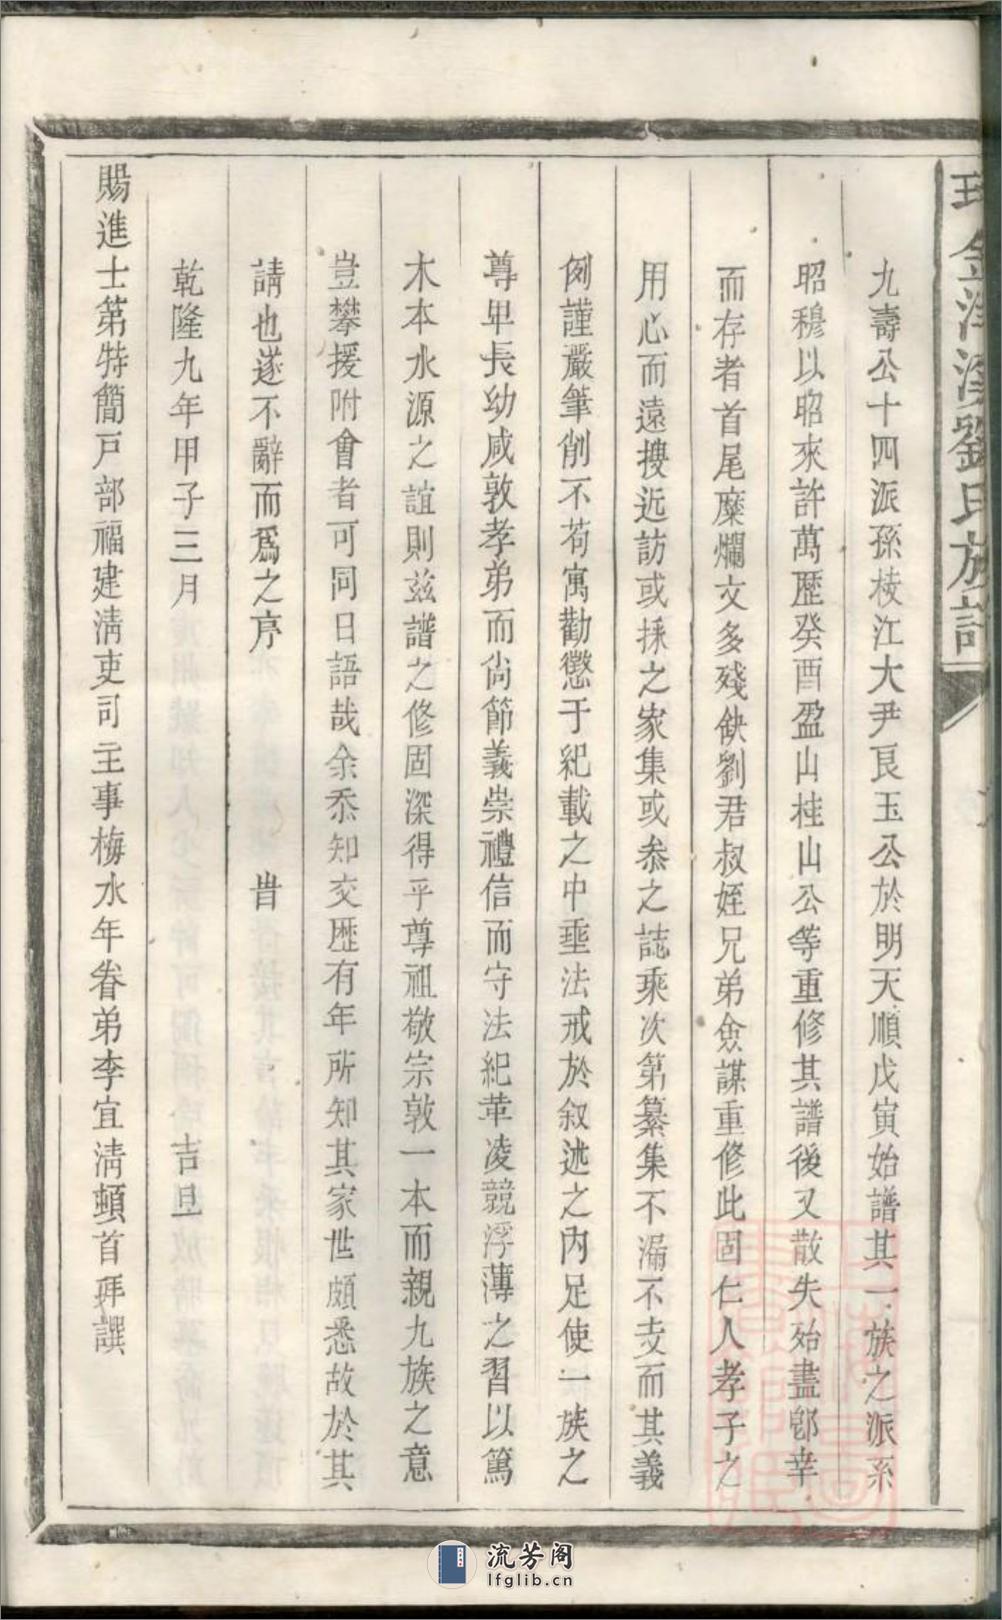 劉氏族譜
九壽公十四派孫棱江大尹良玉公於明天順戊寅始譜其一族之派系
昭穆以昭來許萬歷癸酉盈山桂山公等重修其譜後又散失殆盡卽幸
而存者首尾糜爛文多殘缺劉君叔姪兄弟僉謀重修此固仁人孝子之
用心而遠搜近訪或採之家集或叅之誌乘次第纂集不漏不支而其義
例謹嚴筆削不苟寓勸懲于紀載之中垂法戒於叙述之內足使一族之
尊卑長幼咸敦孝弟而尚節義崇禮信而守法紀革凌競浮薄之習以篤
木本水源之誼則兹譜之修固深得乎尊祖敬宗敦一本而親九族之意
豈攀援附會者可同日語哉余忝知交歷有年所知其家世頗悉故於其
請也遂不辭而爲之序　　　旹
乾隆九年甲子三月　　　吉旦
賜進士第特簡戶部福建淸吏司主事梅水年眷弟李宜淸頓首拜譔
流芳阁
lfglib.cn